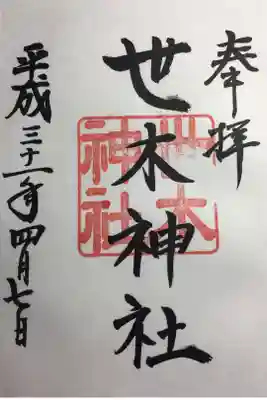 奉拝
世木神社
平成三十一年四月七日
世木
神社